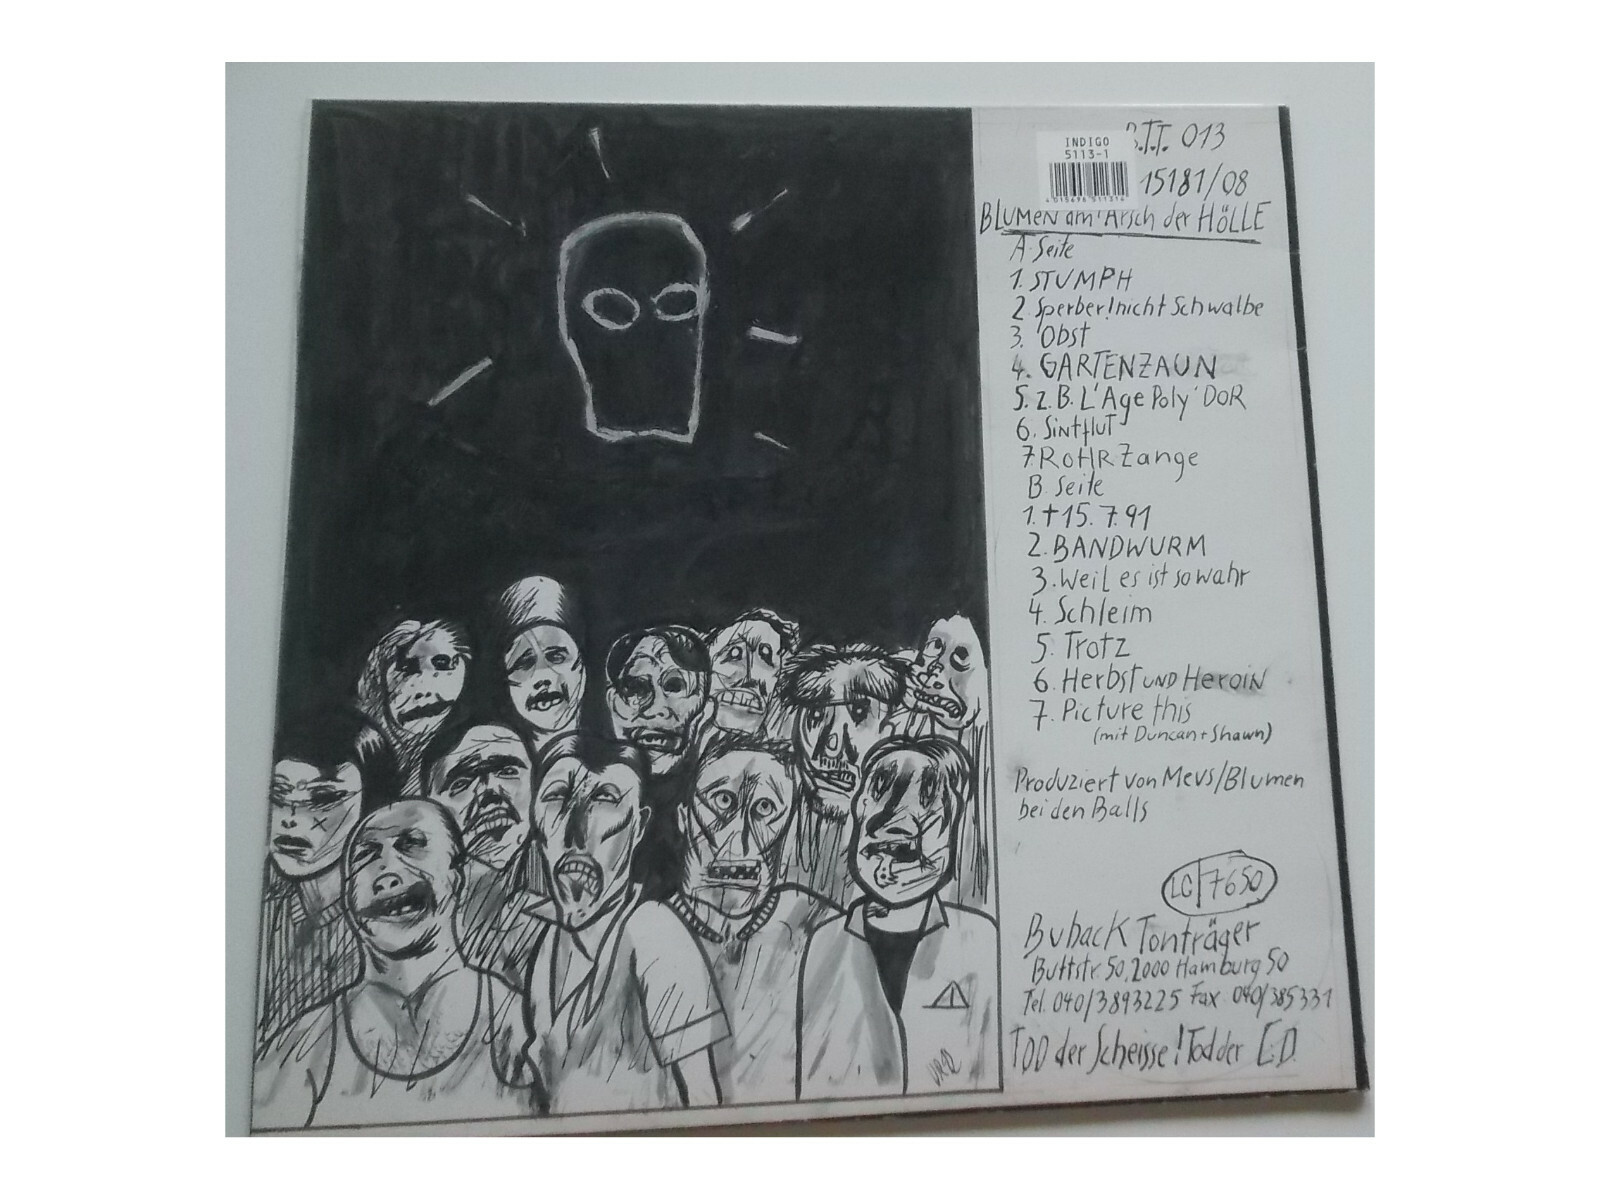 INDIGO
5113-1
4 015698 511314
B.T.T. 013
15181/08
BLUMEN am Arsch der HÖLLE
A Seite
1. STUMPH
2. Sperber! nicht Schwalbe
3. Obst
4. GARTENZAUN
5. z.B. L'Age Poly' DOR
6. Sintflut
7. ROHRZange
B. Seite
1. † 15. 7. 91
2. BANDWURM
3. Weil es ist so wahr
4. Schleim
5. Trotz
6. Herbst UND HEROIN
7. Picture this
(mit Duncan + Shawn)
Produziert von Mevs/Blumen
bei den Balls
LC 7650
BubacK Tonträger
Buttstr. 50, 2000 Hamburg 50
Tel. 040/3893225 Fax 040/385331
TOD der Scheisse! Tod der C.D.